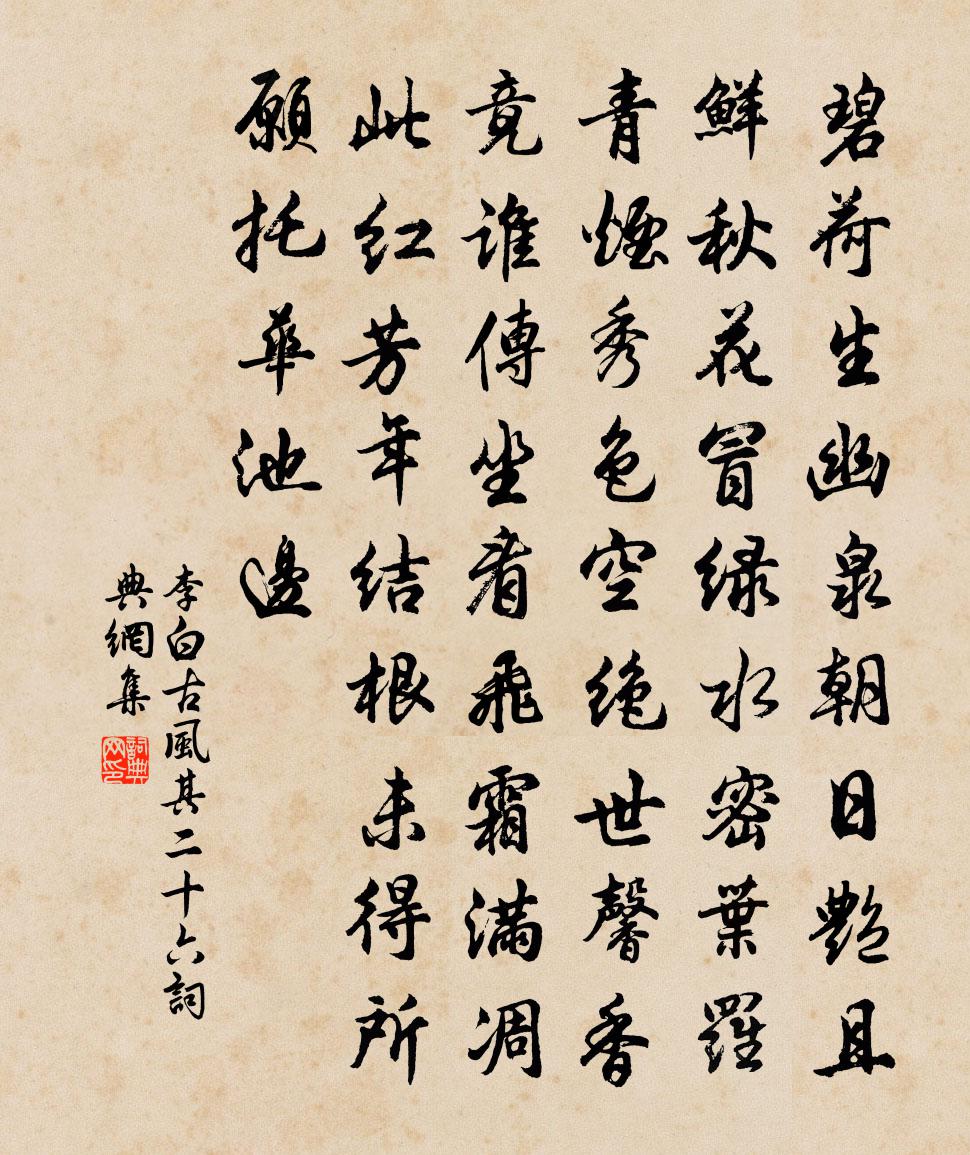 碧荷生幽泉朝日艷且
鮮秋花冒绿水密葉羅
青煙秀色空绝世馨香
竟誰傳坐看飛霜滿凋
此红芳年结根未得所
願托華池邊
李白古風其二十六詞
典網集
詞典
网印